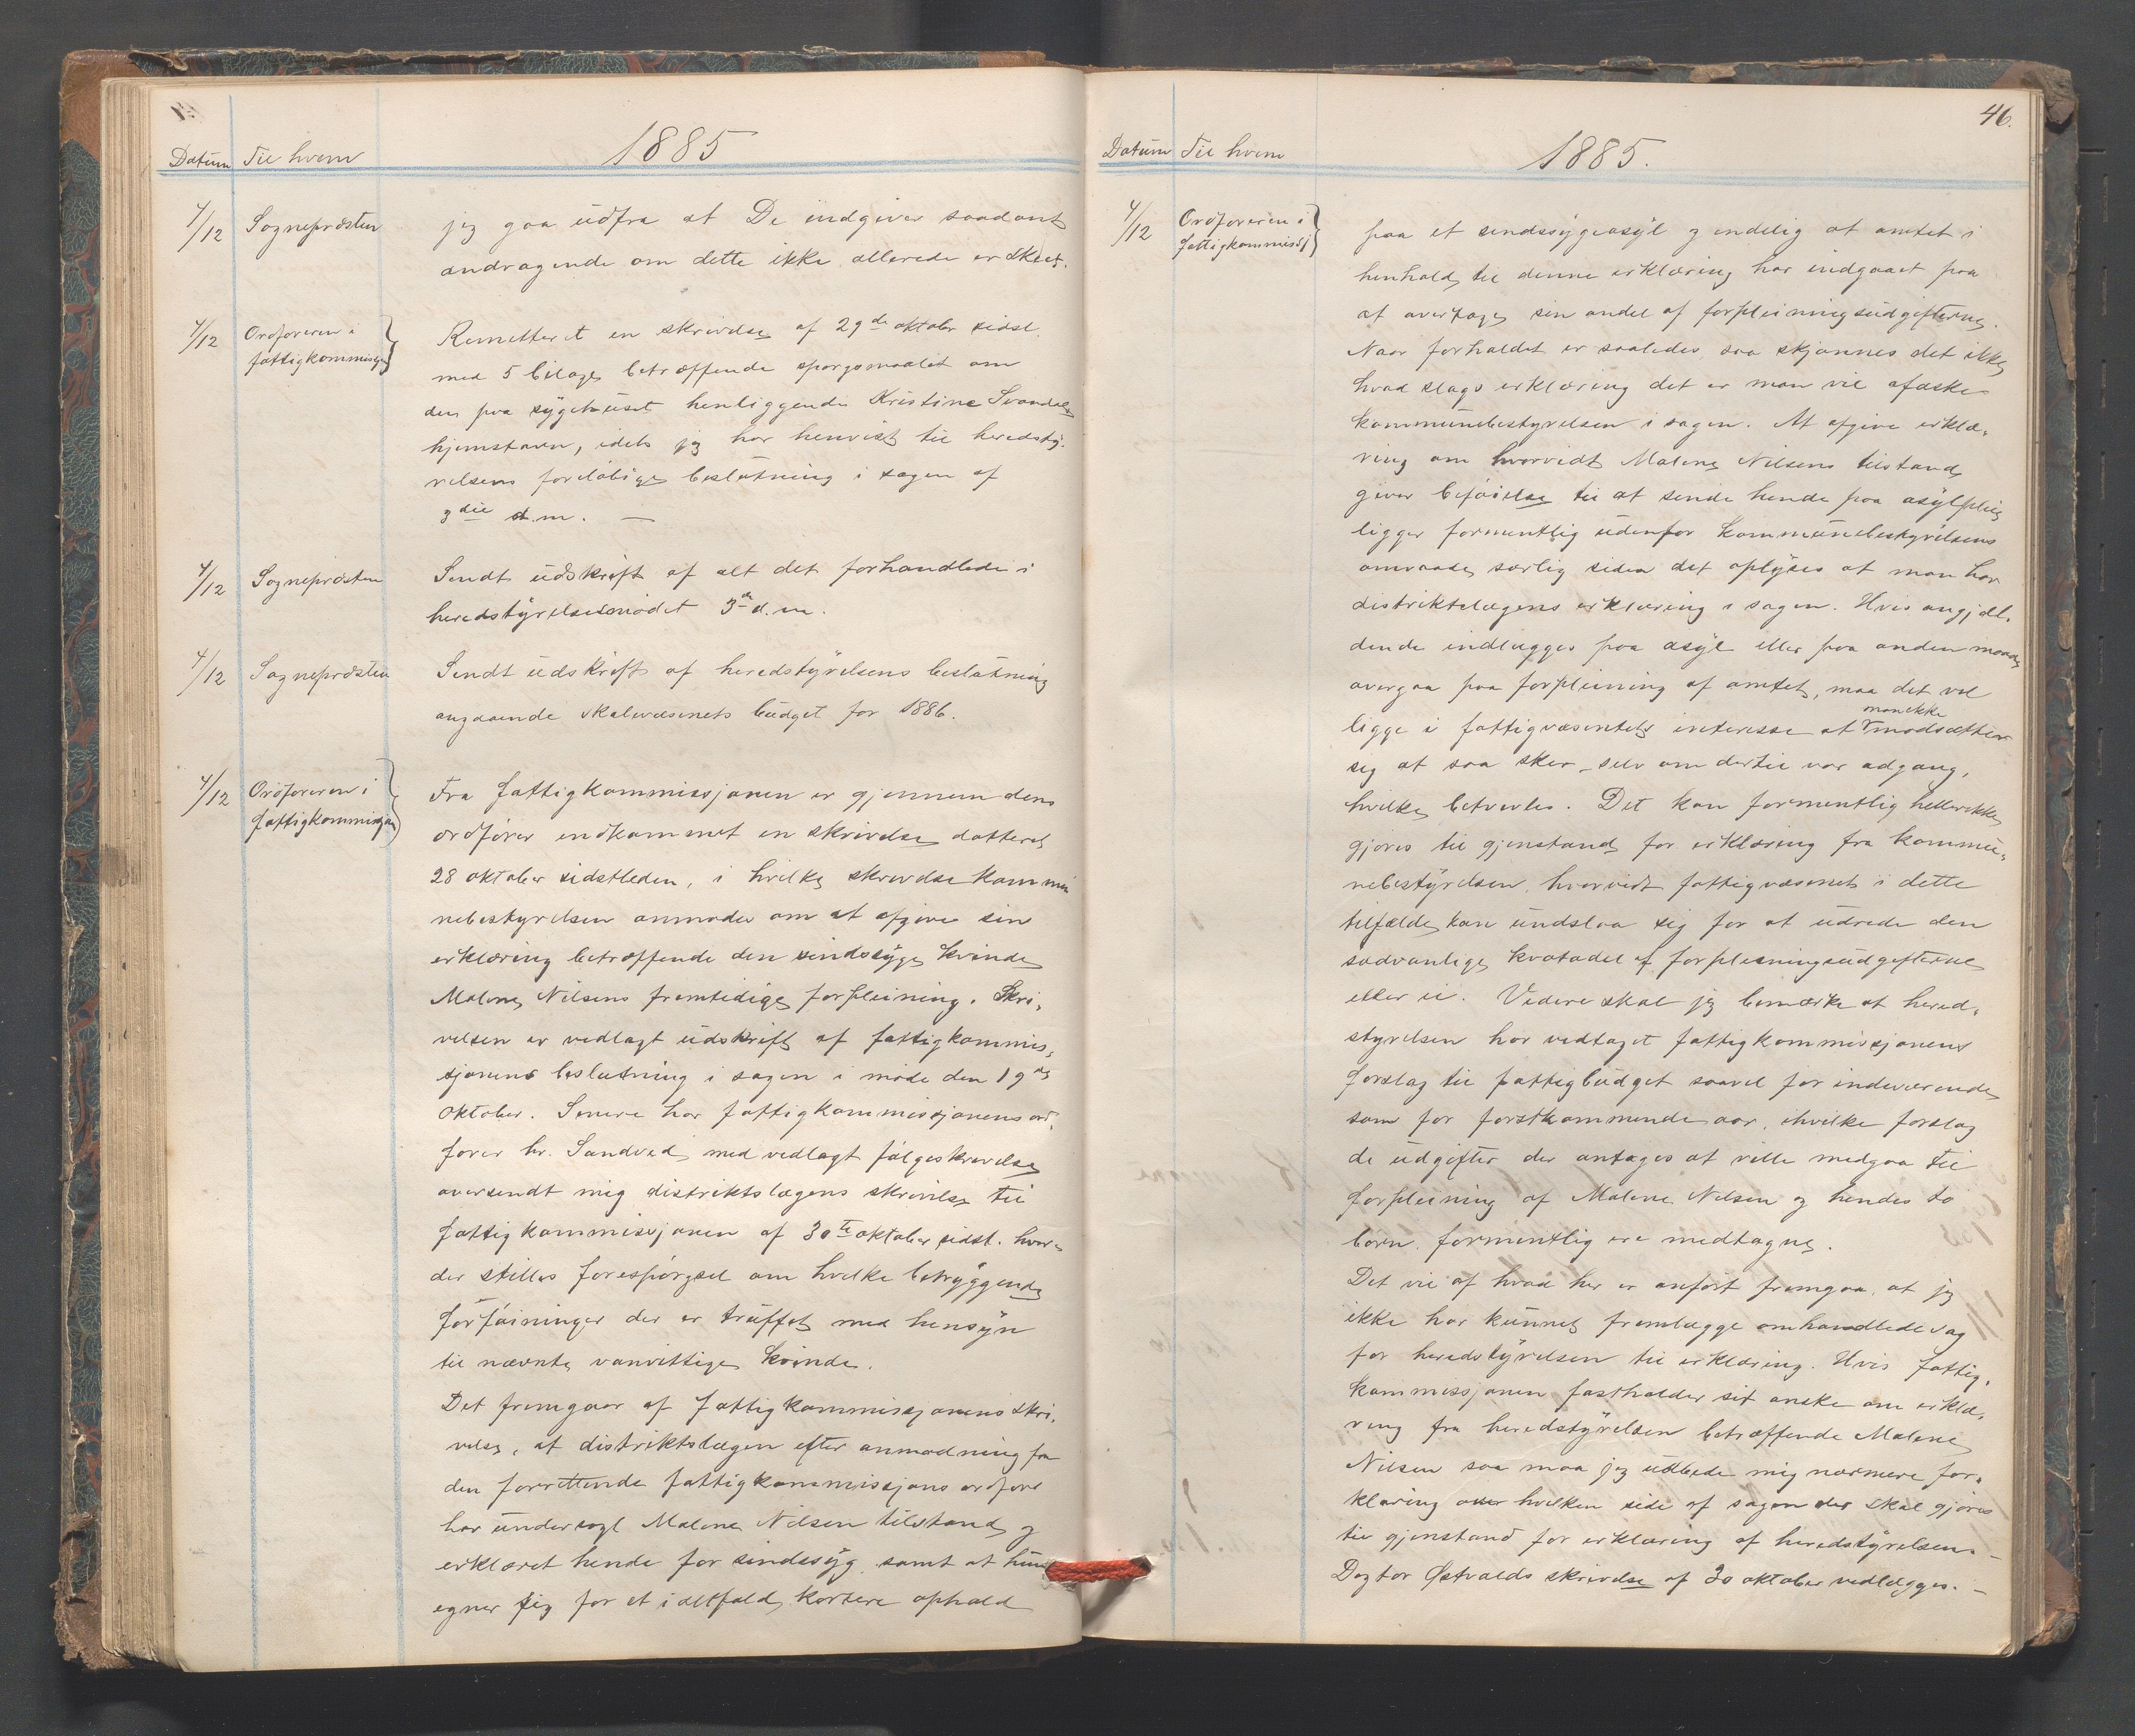 1885
Datum Til hvem
4/12 Sognepresten
jeg gaa udfra at De indgiver saadant
andragende om dette ikke allerede er skeet.
4/12 Ordføreren i
fattigkommissjen
Remitteret en skrivelse af 29de oktober sidst.
med 5 bilage betræffende spørgsmaalet om
den paa sygehuset henliggende Kristine Svandals
hjemstavn, idet jeg har henvist til heredsty-
relsens foreløbige beslutning i sagen af
3die d.m. —
4/12 Sognepresten
Sendt udskrift af alt det forhandlede i
heredstyrelsesmødet 3de d.m.
4/12 Sognepresten
Sendt udskrift af heredstyrelsens beslutning
angaaende skolevæsenets budget for 1886.
4/12 Ordføreren i
fattigkommissjonen
Fra fattigkommissjonen er gjennem dens
ordfører indkommet en skrivelse datteret
28 oktober sidstleden, i hvilke skrivelse kommu
nebestyrelsen anmodes om at afgive sin
erklæring betræffende den sindssyge kvinde
Malene Nilsens fremtidige forpleining. Skri-
velsen er vedlagt udskrift af fattigkommis-
sjonens beslutning i sagen i møde den 19de
oktober. Senere har fattigkommissjonens ord-
fører hr. Sandved med vedlagt følgeskrivelse
oversendt mig distriktslægens skrivelse til
fattigkommissjonen af 30te oktober sidst. hvor-
der stilles forespørgsel om hvilke betryggende
forføininger der er truffet med hensyn
til nævnte vanvittige kvinde.
Det fremgaar af fattigkommissjonens skri-
velse, at distriktslægen efter anmodning fra
den forrettende fattigkommissjons ordfører
har undersøgt Malene Nilsen tilstand og
erklæret hende for sindssyg samt at hun
egner sig for et i altfald kortere ophold
46.
1885.
Datum Til hvem
4/12 Ordføreren i
fattigkommissj
paa et sindssygeasyl og endelig at amtet i
henhold til denne erklæring har indgaaet paa
at overtage sin andel af forpleiningsudgifterne.
Naar forholdet er saaledes, saa skjønnes det ikke
hvad slags erklæring det er man vil afæske
kommunebestyrelsen i sagen. At afgive erklæ-
ring om hvorvidt Malene Nilsens tilstand
giver beføielse til at sende hende paa asylpleie
ligger formentlig udenfor kommunebestyrelsens
omraade, særlig siden det oplyses at man har
distriktslægens erklæring i sagen. Hvis angjæl-
dende indlægges paa asyl eller paa anden maade
overgaa paa forpleining af amtet, maa det vel
man ikke
ligge i fattigvæsenets interesse at modsætter
sig at saa sker, selv om dertil var adgang,
hvilke betvivles. Det kan formentlig hellerikke
gjøres til gjenstand for erklæring fra kommu-
nebestyrelsen, hvorvidt fattigvæsenet i dette
tilfælde kan undslaa sig for at udrede den
sædvanlige kvotadel af forpleiningsudgifterne
eller ei. Videre skal jeg bemærke at hered-
styrelsen har vedtaget fattigkommissjonens
forslag til fattigbudget saavel for indeværende
som for førstkommende aar, ihvilke forslag
de udgifter der antages at ville medgaa til
forpleining af Malene Nilsen og hendes to
børn, formentlig ere medtagne.
Det vil af hvad her er anført fremgaa, at jeg
ikke har kunnet fremlægge omhandlede sag
for heredstyrelsen til erklæring. Hvis fattig-
kommissjonen fastholder sit ønske om erklæ-
ring fra heredstyrelsen betræffende Malene
Nilsen saa maa jeg udbede mig nærmere for-
klaring over hvilken side af sagen der skal gjøres
til gjenstand for erklæring af heredstyrelsen. —
Doktor Østvolds skrivelse af 30 oktober vedlægges. —